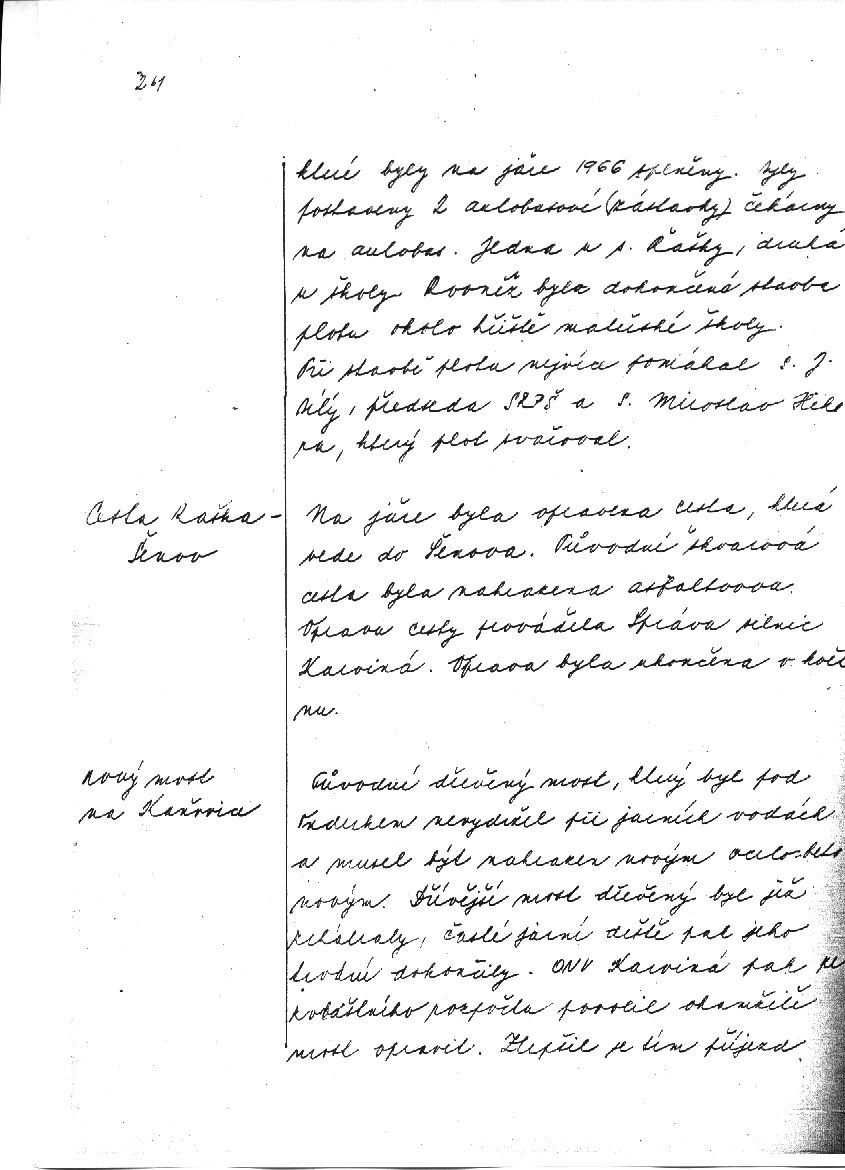 241
které byly na jaře 1966 splněny. Byly
postaveny 2 autobusové (zástavky) čekárny
na autobus. Jedna u s. Rašky, druhá
u školy. Rovněž byla dokončená stavba
plotu okolo hřiště mateřské školy.
Při stavbě plotu nejvíce pomáhal s. J.
Bílý, předseda SRPŠ a s. Miroslav Heke
ra, který plot svařoval.
Cesta Raška –
Šenov
Na jaře byla opravena cesta, která
vede do Šenova. Původní škvarová
cesta byla nahrazena asfaltovou.
Opravu cesty prováděla Správa silnic
Karviná. Oprava byla ukončena v květ
nu.
Nový most
na Kaňovice
Původní dřevěný most, který byl pod
nevydržel při jarních vodách
a musel být nahrazen novým ocelobeto
novým. Dřívější most dřevěný byl již
zchátralý, časté jarní deště pak jeho
dokončily. ONV Karviná pak ze
zvláštního rozpočtu povolil okamžitě
most opravit. Zlepšil se tím příjezd